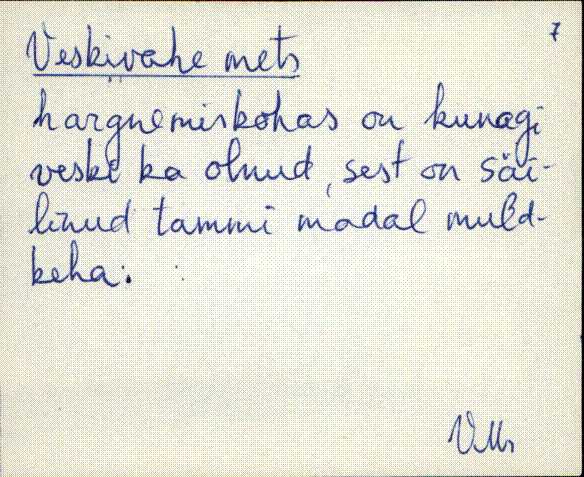 7
Veskivahe mets
hargnemiskohas on kunagi
veski ka olnud, sest on säi-
linud tammi madal muld-
keha.